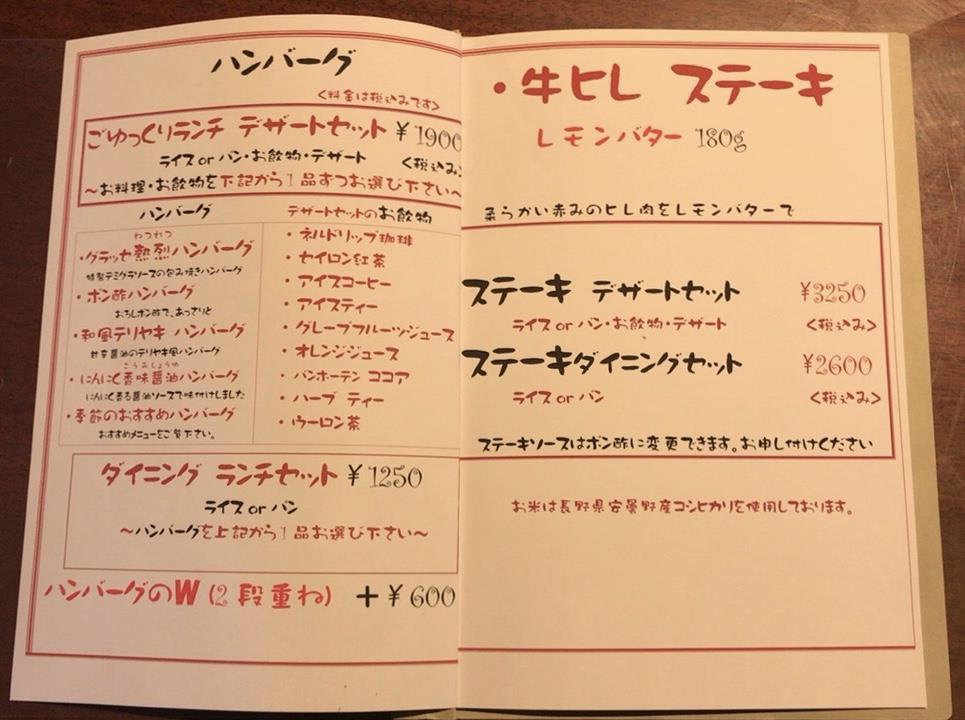 ハンバーグ
<料金は税込みです>
ごゆっくりランチ デザートセット ¥1900
ライス or パン・お飲物・デザート <税込み>
～お料理・お飲物を下記から1品ずつお選び下さい～
ハンバーグ
わつれつ
・グラッセ熱烈ハンバーグ
特製デミグラソースの包み焼きハンバーグ
・ポン酢ハンバーグ
おろしポン酢で、あっさりと
・和風テリヤキ ハンバーグ
甘辛醤油のテリヤキ風ハンバーグ
こうみしょうゆ
・にんにく香味醤油ハンバーグ
にんにく香る醤油ソースで味付けしました
・季節のおすすめハンバーグ
おすすめメニューをご覧下さい。
デザートセットのお飲物
・ネルドリップ珈琲
・セイロン紅茶
・アイスコーヒー
・アイスティー
・グレープフルーツジュース
・オレンジジュース
・バンホーテン ココア
・ハーブ ティー
・ウーロン茶
ダイニング ランチセット ¥1250
ライス or パン
～ハンバーグを上記から1品お選び下さい～
ハンバーグのW(2段重ね) +¥600
・牛ヒレ ステーキ
レモンバター 180g
柔らかい赤みのヒレ肉をレモンバターで
ステーキ デザートセット ¥3250
ライス or パン・お飲物・デザート <税込み>
ステーキダイニングセット ¥2600
ライス or パン <税込み>
ステーキソースはポン酢に変更できます。お申し付けください
お米は長野県安曇野産コシヒカリを使用しております。